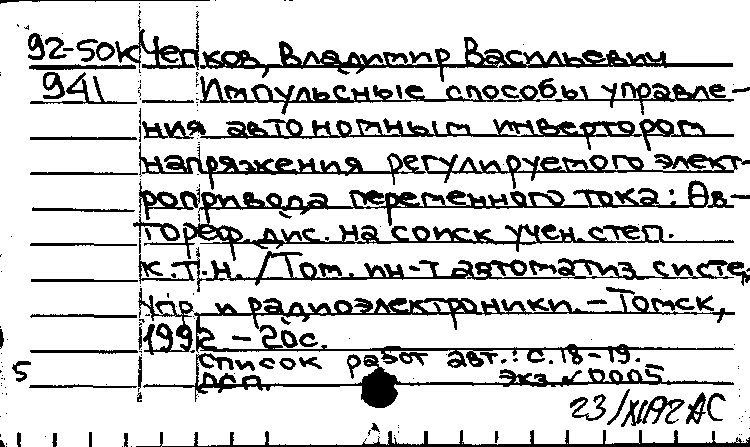 92-50к Чепков, Владимир Васильевич
941 Импульсные способы управле-
ния автономным инвертором
напряжения регулируемого элект-
ропривода переменного тока: Ав-
тореф. дис. на соиск учен. степ.
к.т.н. / Том. ин-т автоматиз. систем
упр. и радиоэлектроники. – Томск,
1992 – 20с.
Список работ авт.: с. 18-19.
5 ДСП. Экз. № 0005
23/XI92 АС